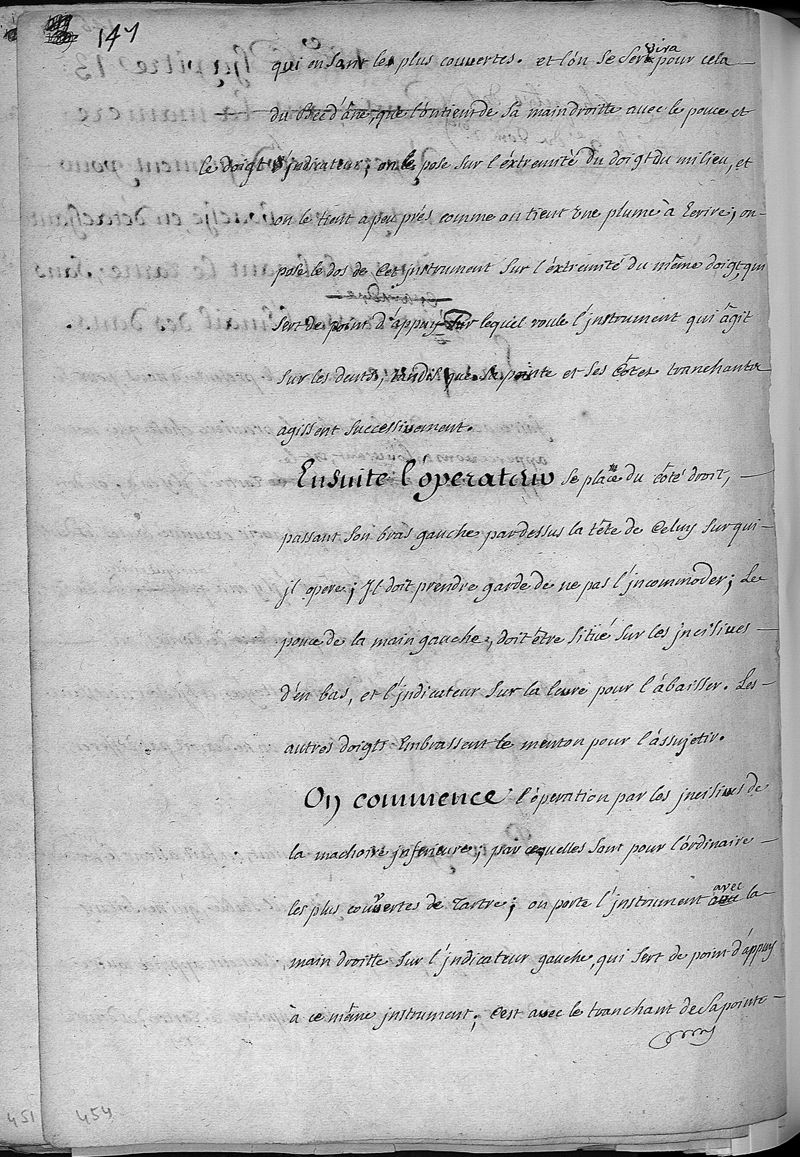 147
qui en sont les plus couvertes. et l'on se servira pour cela
du Bec d'âne, que l'on tient de sa main droitte avec le pouce et
le doigt jndicateur; on le pose sur l'éxtremité du doigt du milieu, et
on le tient apeu prés comme on tient une plume à Ecrire; on
pose le dos de Cet jnstrument sur l'éxtremité du même doigt, qui
sert de point d'appuy sur lequel roule l'jnstrument qui âgit
sur les dents, tandis que sa pointe et ses Côtés tranchants
agissent successivement.
Ensuite l'operateur se place du côté droit,
passant son bras gauche pardessus la tête de Celuy sur qui
jl opere; Jl doit prendre garde de ne pas l'jncommoder; Le
pouce de la main gauche, doit être situé sur les jncisives
d'en bas, et l'jndicateur sur la levre pour l'abaisser. Les
autres doigts Embrassent le menton pour l'assujetir.
On commence l'operation par les jncisives de
la machoire jnferieure, parcequelles sont pour l'ordinaire
les plus couvertes de Tartre; on porte l'jnstrument avec la
main droitte sur l'jndicateur gauche, qui sert de point d'appuy
à ce même jnstrument; C'est avec le tranchant de sa pointe
451 454